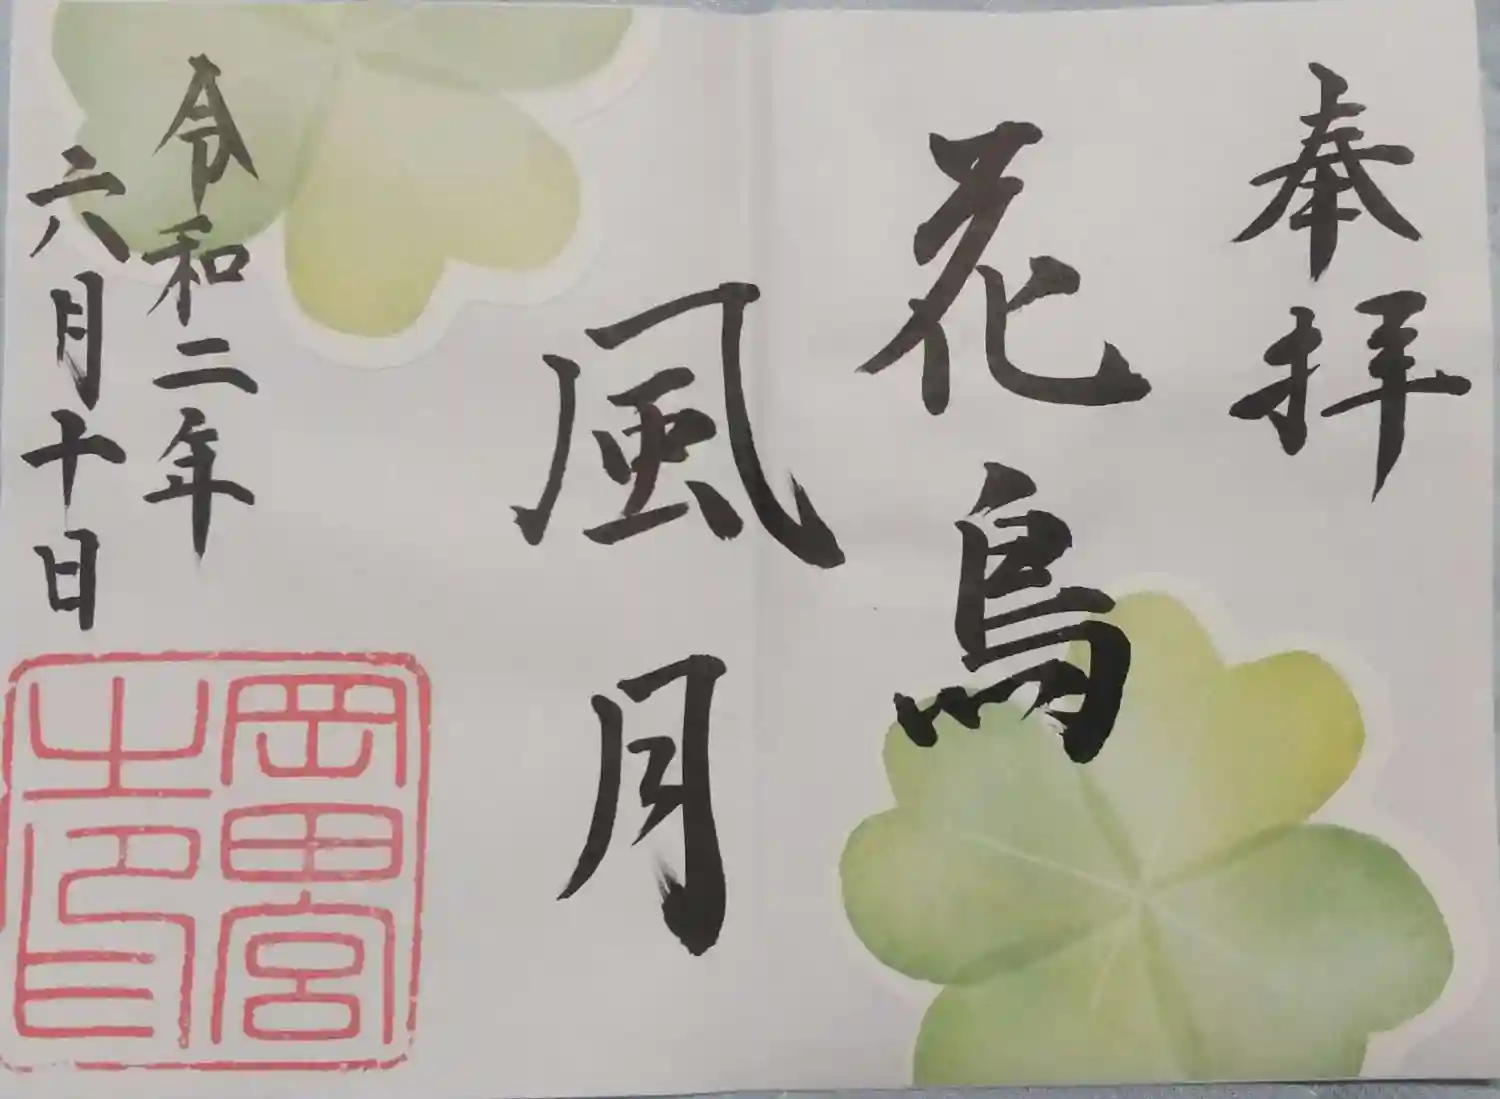 奉拝
花鳥
風月
令和二年
六月十日
岡田宮
之印